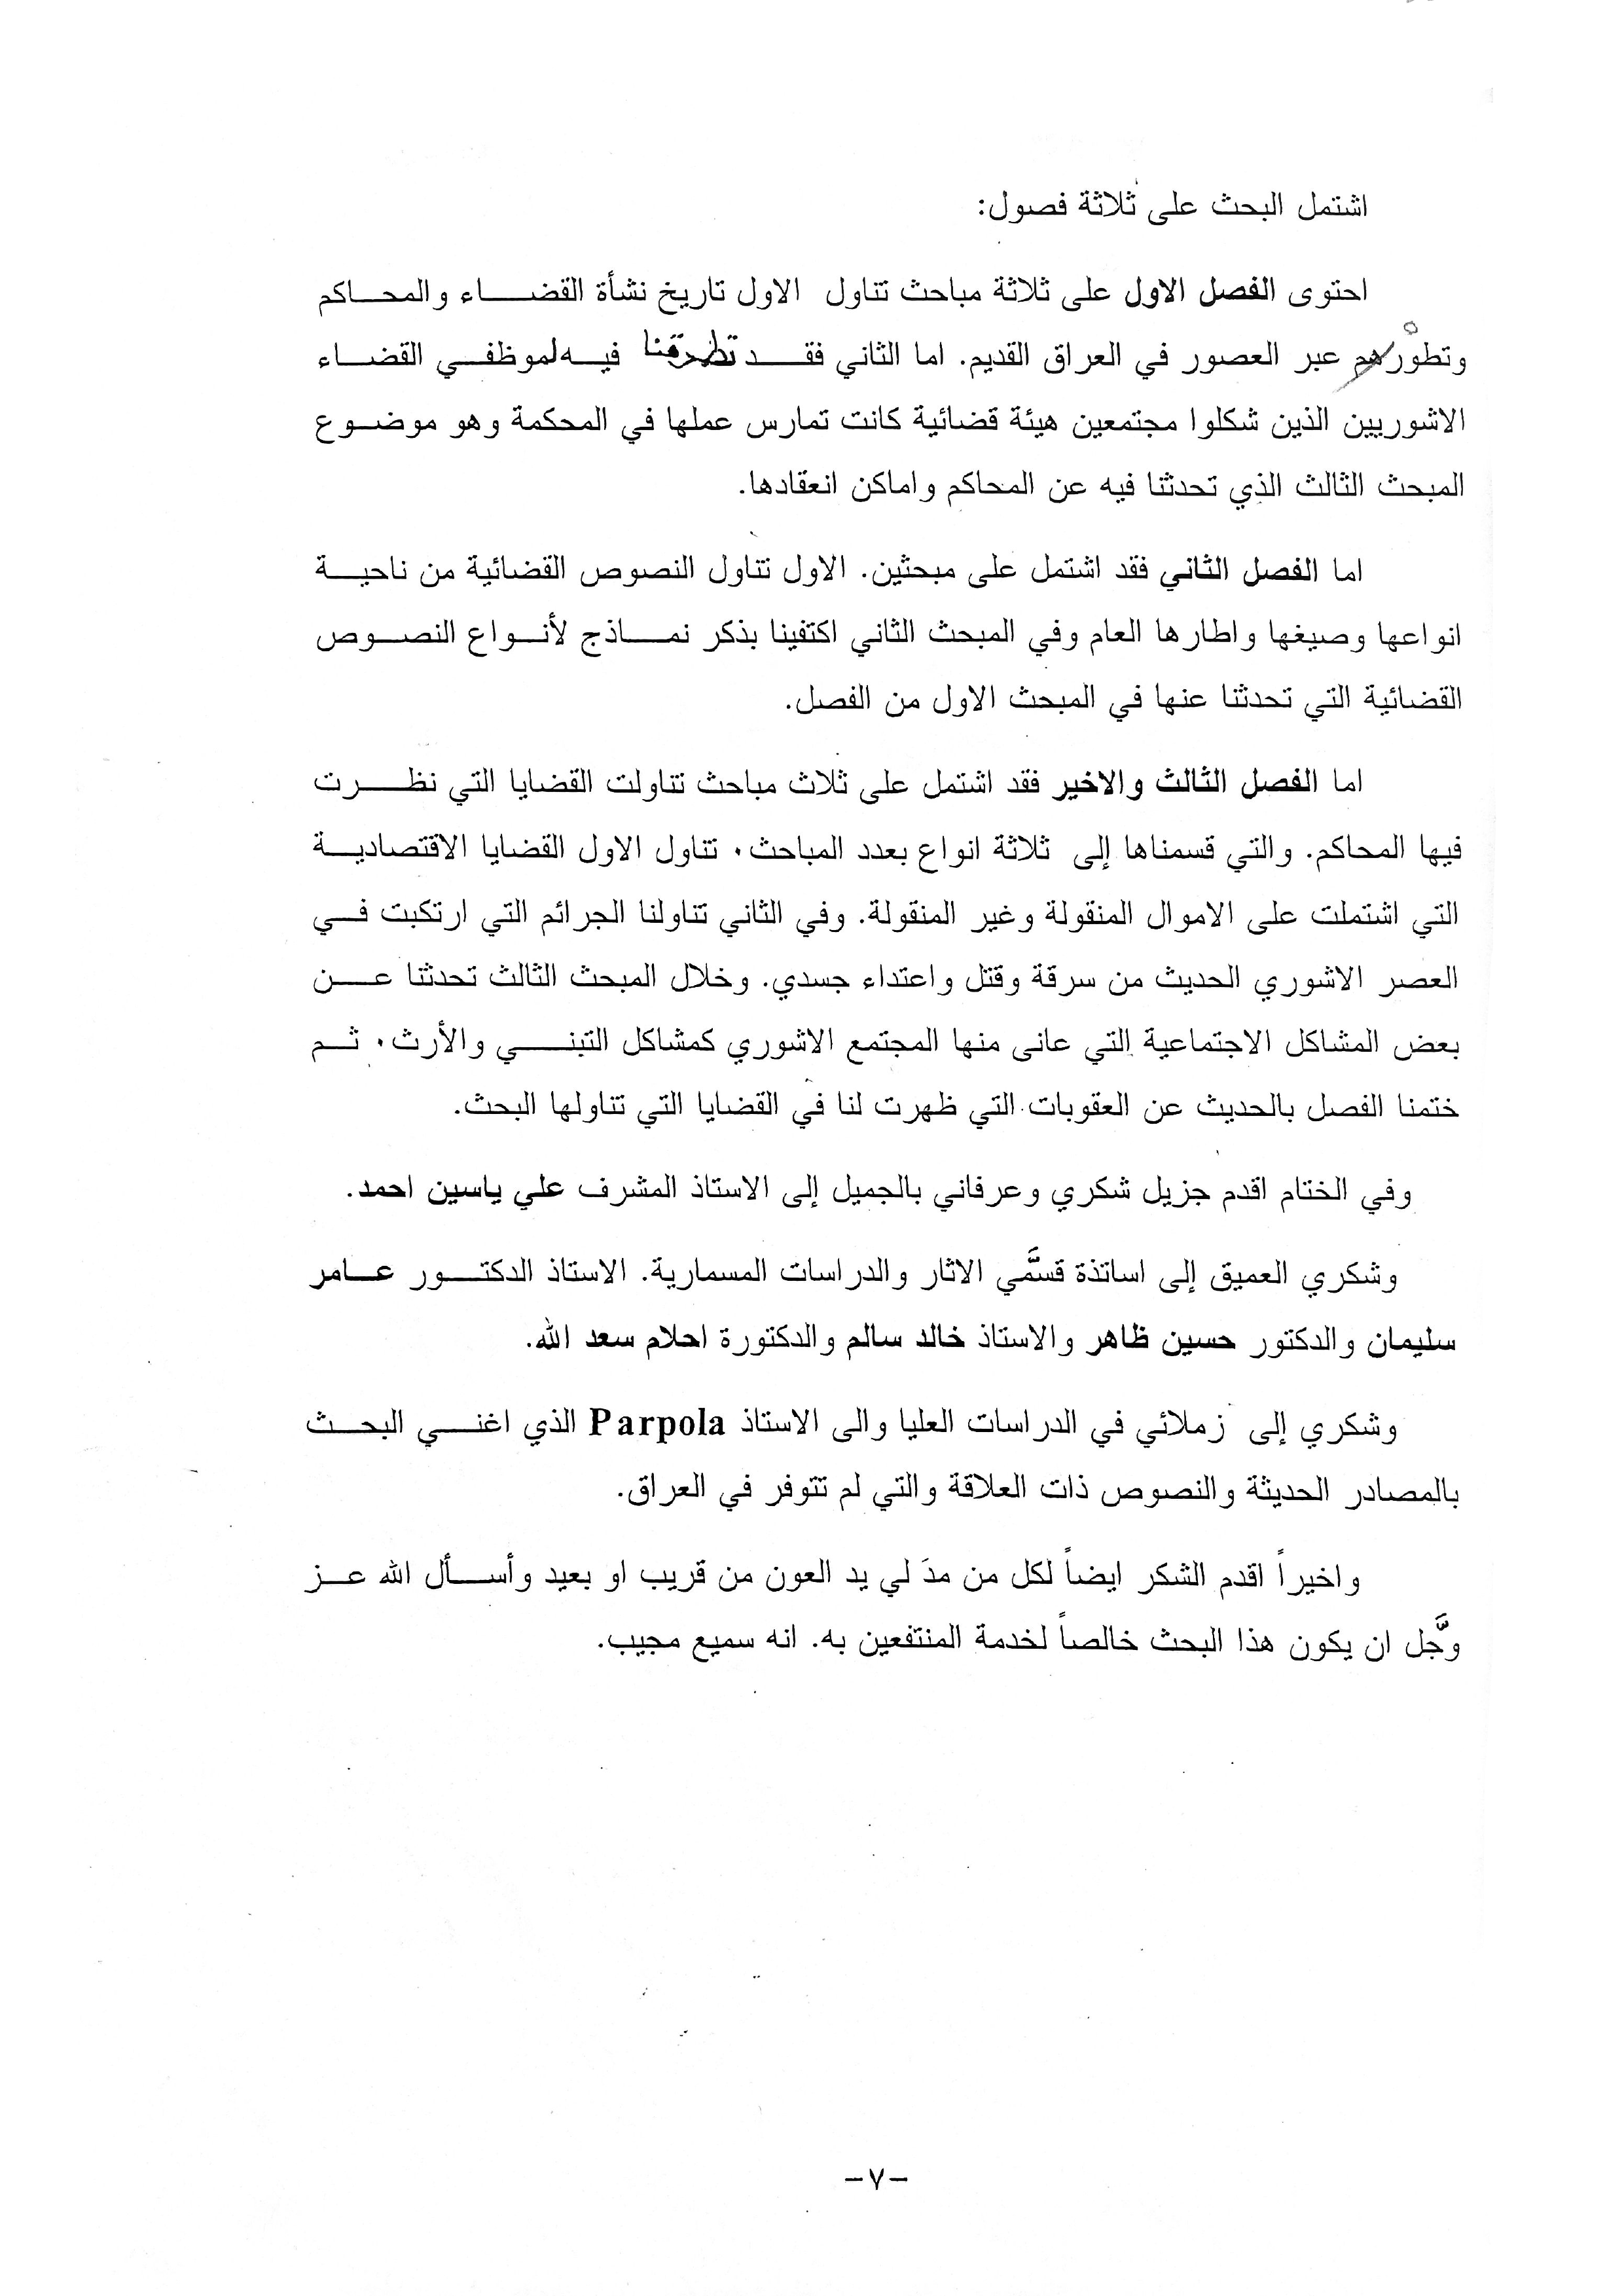 اشتمل البحث على ثلاثة فصول:
احتوى الفصل الاول على ثلاثة مباحث تناول الاول تاريخ نشأة القضاء والمحاكم
وتطورهم عبر العصور في العراق القديم. اما الثاني فقد تطرقنا فيه لموظفي القضاء
الاشوريين الذين شكلوا مجتمعين هيئة قضائية كانت تمارس عملها في المحكمة وهو موضوع
المبحث الثالث الذي تحدثنا فيه عن المحاكم واماكن انعقادها.
اما الفصل الثاني فقد اشتمل على مبحثين. الاول تناول النصوص القضائية من ناحية
انواعها وصيغها واطارها العام وفي المبحث الثاني اكتفينا بذكر نماذج لأنواع النصوص
القضائية التي تحدثنا عنها في المبحث الاول من الفصل.
اما الفصل الثالث والاخير فقد اشتمل على ثلاث مباحث تناولت القضايا التي نظرت
فيها المحاكم. والتي قسمناها إلى ثلاثة انواع بعدد المباحث. تناول الاول القضايا الاقتصادية
التي اشتملت على الاموال المنقولة وغير المنقولة. وفي الثاني تناولنا الجرائم التي ارتكبت في
العصر الاشوري الحديث من سرقة وقتل واعتداء جسدي. وخلال المبحث الثالث تحدثنا عن
بعض المشاكل الاجتماعية التي عانى منها المجتمع الاشوري كمشاكل التبني والأرث. ثم
ختمنا الفصل بالحديث عن العقوبات التي ظهرت لنا في القضايا التي تناولها البحث.
وفي الختام اقدم جزيل شكري وعرفاني بالجميل إلى الاستاذ المشرف علي ياسين احمد.
وشكري العميق إلى اساتذة قسمَّي الاثار والدراسات المسمارية. الاستاذ الدكتور عامر
سليمان والدكتور حسين ظاهر والاستاذ خالد سالم والدكتورة احلام سعد الله.
وشكري إلى زملائي في الدراسات العليا والى الاستاذ Parpola الذي اغنى البحث
بالمصادر الحديثة والنصوص ذات العلاقة والتي لم تتوفر في العراق.
واخيراً اقدم الشكر ايضاً لكل من مدَ لي يد العون من قريب او بعيد وأسأل الله عز
وَّجل ان يكون هذا البحث خالصاً لخدمة المنتفعين به. انه سميع مجيب.
-٧-